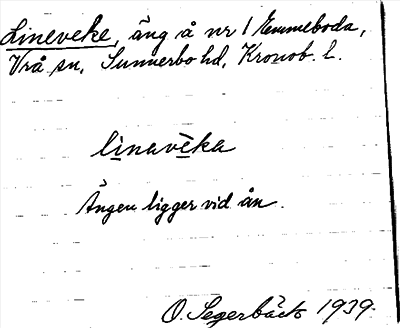 Lineveke, äng å nr 1 Emmeboda,
Vrå sn, Sunnerbo hd, Kronob. l.
li̲navēka
Ängen ligger vid ån.
O. Segerbäck 1939.